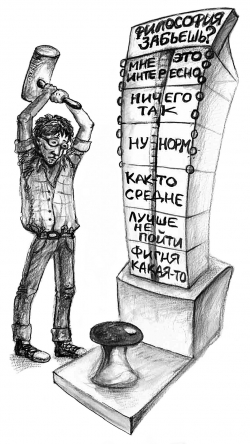 ФИЛОСОФИЯ
ЗАБЬЁШЬ?
МНЕ ЭТО
ИНТЕРЕСНО
НИЧЕГО
ТАК
НУ НОРМ
КАК-ТО
СРЕДНЕ
ЛУЧШЕ
НЕ
ПОЙТИ
ФИГНЯ
КАКАЯ-ТО